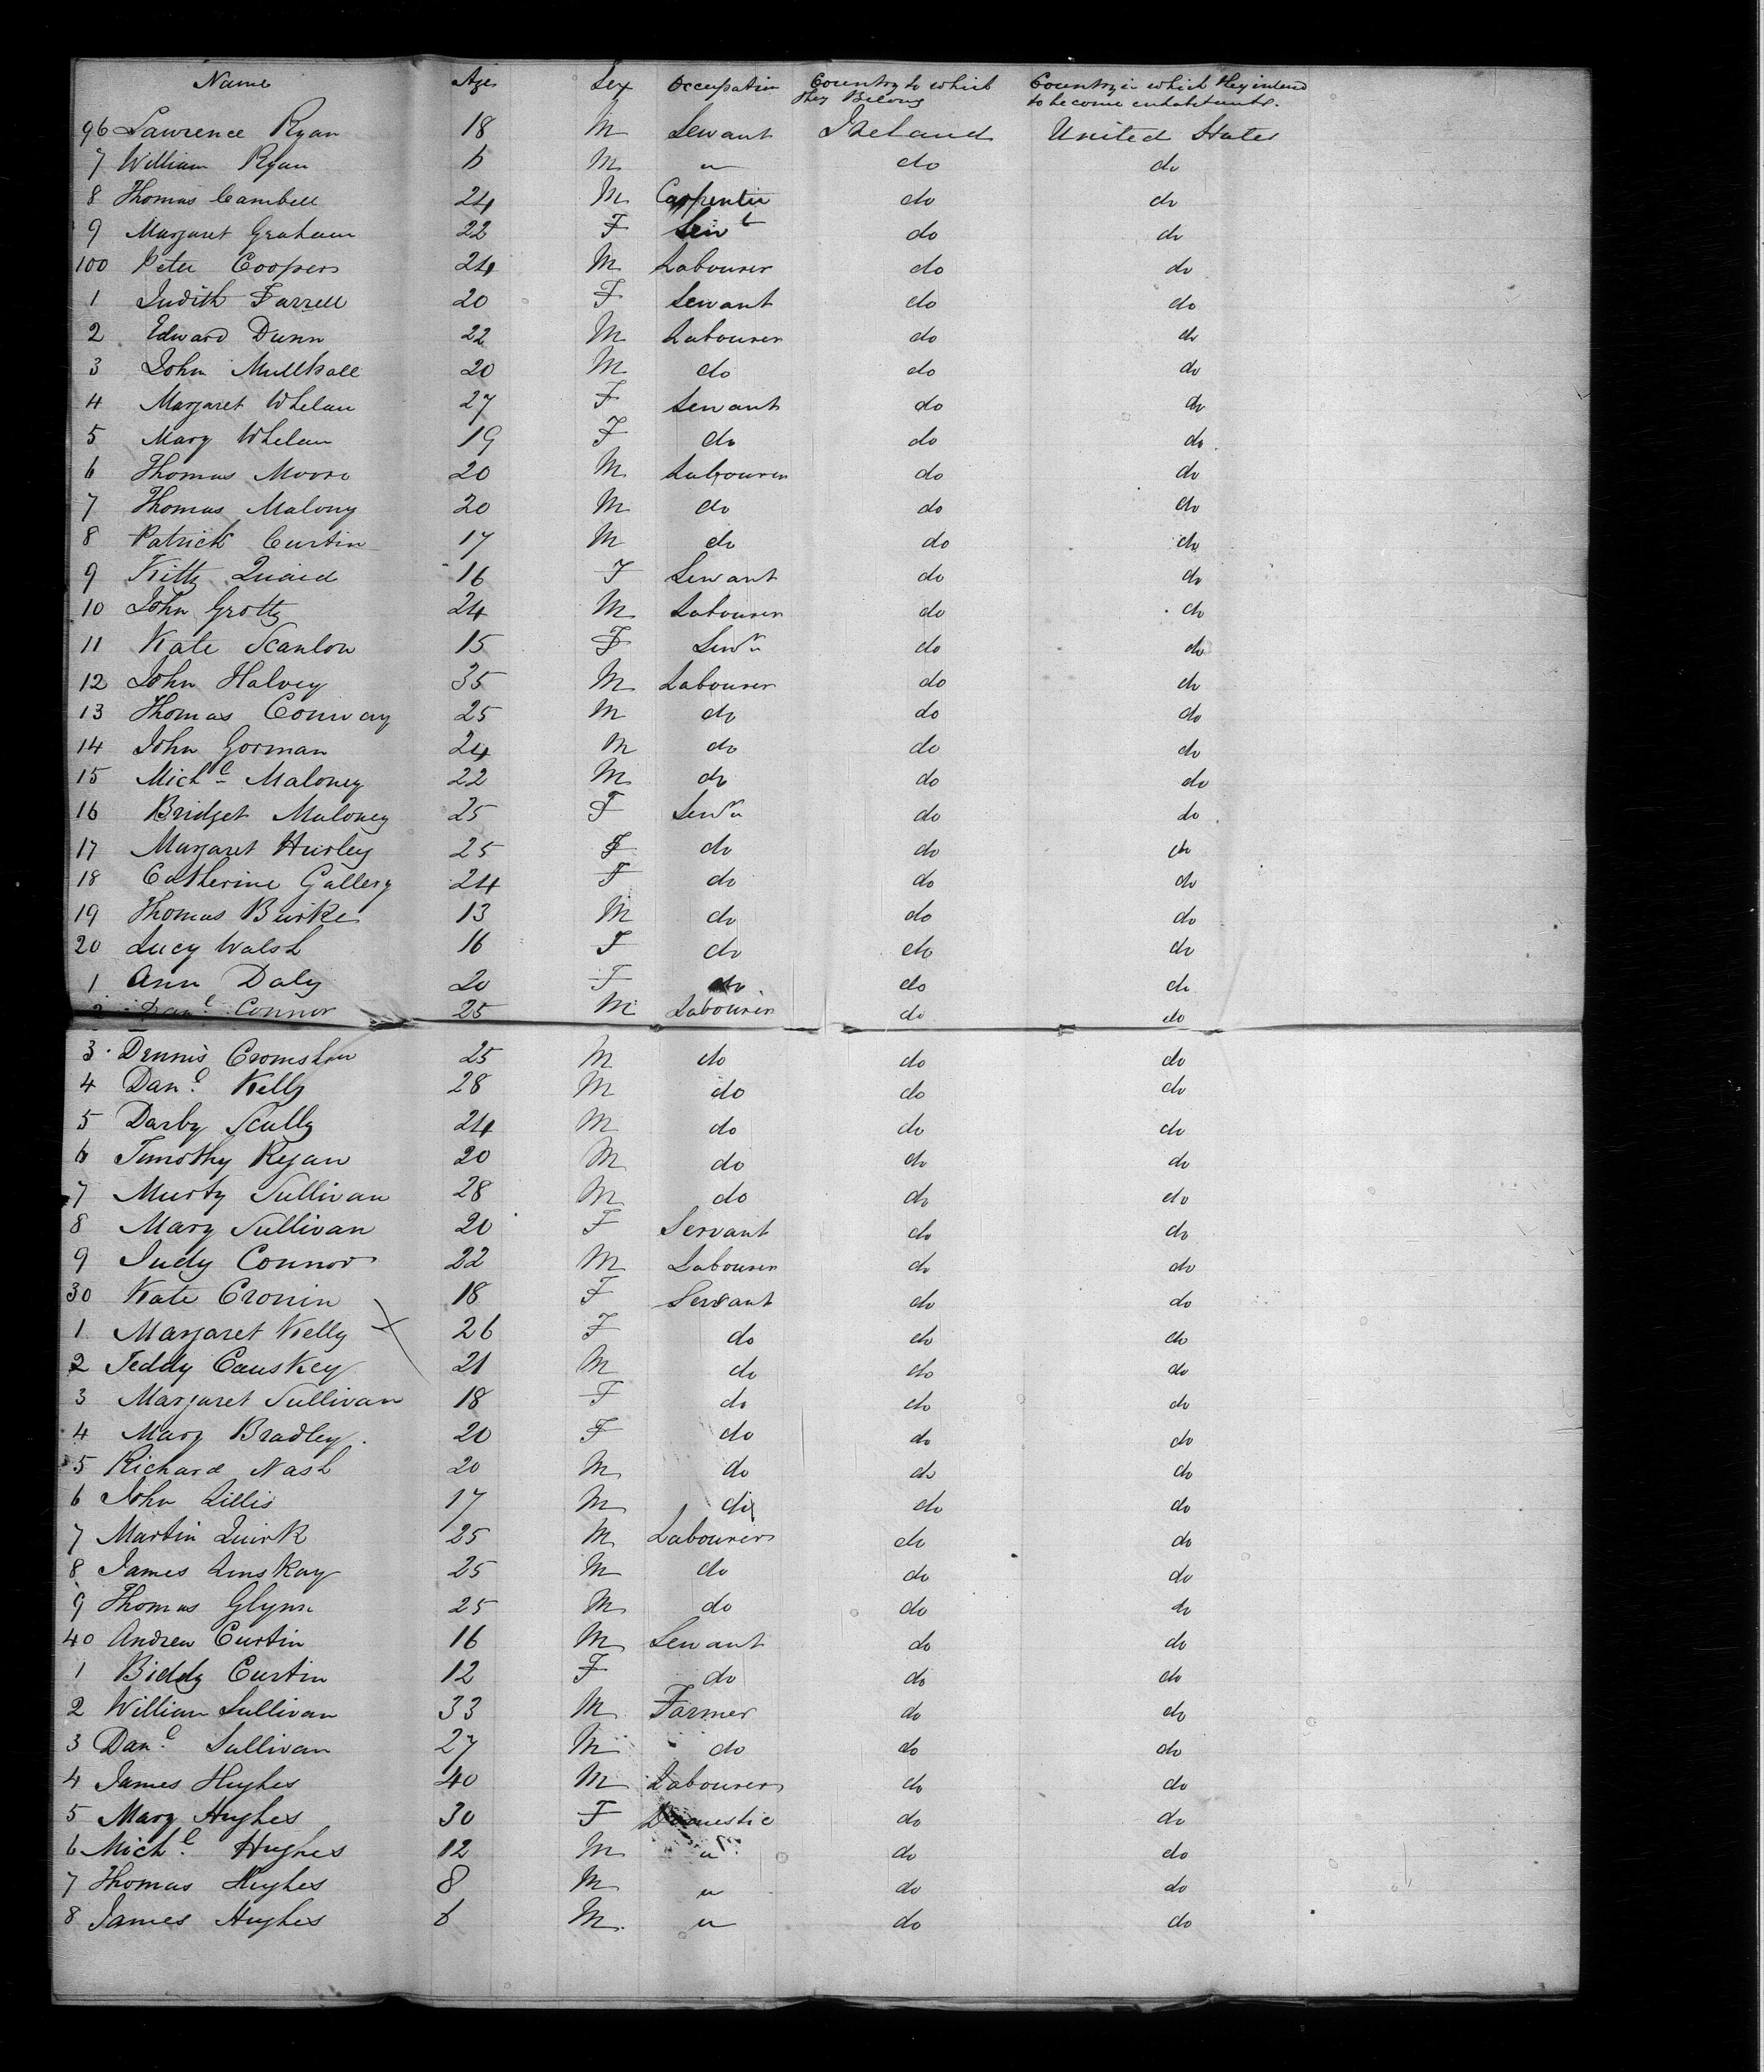 Name Age Sex Occupation Country to which they Belong Country in which they intend to become inhabitants.
96 Lawrence Ryan 18 M Servant Ireland United States
7 William Ryan 6 M " do do
8 Thomas Cambell 24 M Carpenter do do
9 Margaret Graham 22 F Servt do do
100 Peter Coopers 24 M Labourer do do
1 Judith Farrell 20 F Servant do do
2 Edward Dunn 22 M Labourer do do
3 John Mullhall 20 M do do do
4 Margaret Whelan 27 F Servant do do
5 Mary Whelan 19 F do do do
6 Thomas Moore 20 M Labourer do do
7 Thomas Malony 20 M do do do
8 Patrick Curtin 17 M do do do
9 Kitty Quaid 16 F Servant do do
10 John Grotty 24 M Labourer do do
11 Kate Scanlon 15 F do do
12 John Halvey 35 M Labourer do do
13 Thomas Conway 25 M do do do
14 John Gorman 24 M do do do
15 Michl Maloney 22 M do do do
16 Bridget Maloney 25 F do do
17 Margaret Hurley 25 F do do do
18 Catherine Gallery 24 F do do do
19 Thomas Burke 13 M do do do
20 Lucy Walsh 16 F do do do
1 Ann Daly 20 F do do do
2 Danl Connor 25 M Labourer do do
3 Dennis 25 M do do do
4 Danl Kelly 28 M do do do
5 Darby Scully 24 M do do do
6 Timothy Regan 20 M do do do
7 Murty Sullivan 28 M do do do
8 Mary Sullivan 20 F Servant do do
9 Judy Connor 22 M Labourer do do
30 Kate Cronin 18 F Servant do do
1 Margaret Kelly X 26 F do do do
2 Teddy Causkey 21 M do do do
3 Margaret Sullivan 18 F do do do
4 Mary Bradley 20 F do do do
5 Richard Nash 20 M do do do
6 John Lillis 17 M do do do
7 Martin Quirk 25 M Labourer do do
8 James Linskay 25 M do do do
9 Thomas Glynn 25 M do do do
40 Andrew Curtin 16 M Servant do do
1 Biddy Curtin 12 F do do do
2 William Sullivan 33 M Farmer do do
3 Danl Sullivan 27 M do do do
4 James Hughes 40 M Labourer do do
5 Mary Hughes 30 F Domestic do do
6 Michl Hughes 12 M " do do
7 Thomas Hughes 8 M " do do
8 James Hughes 6 M " do do